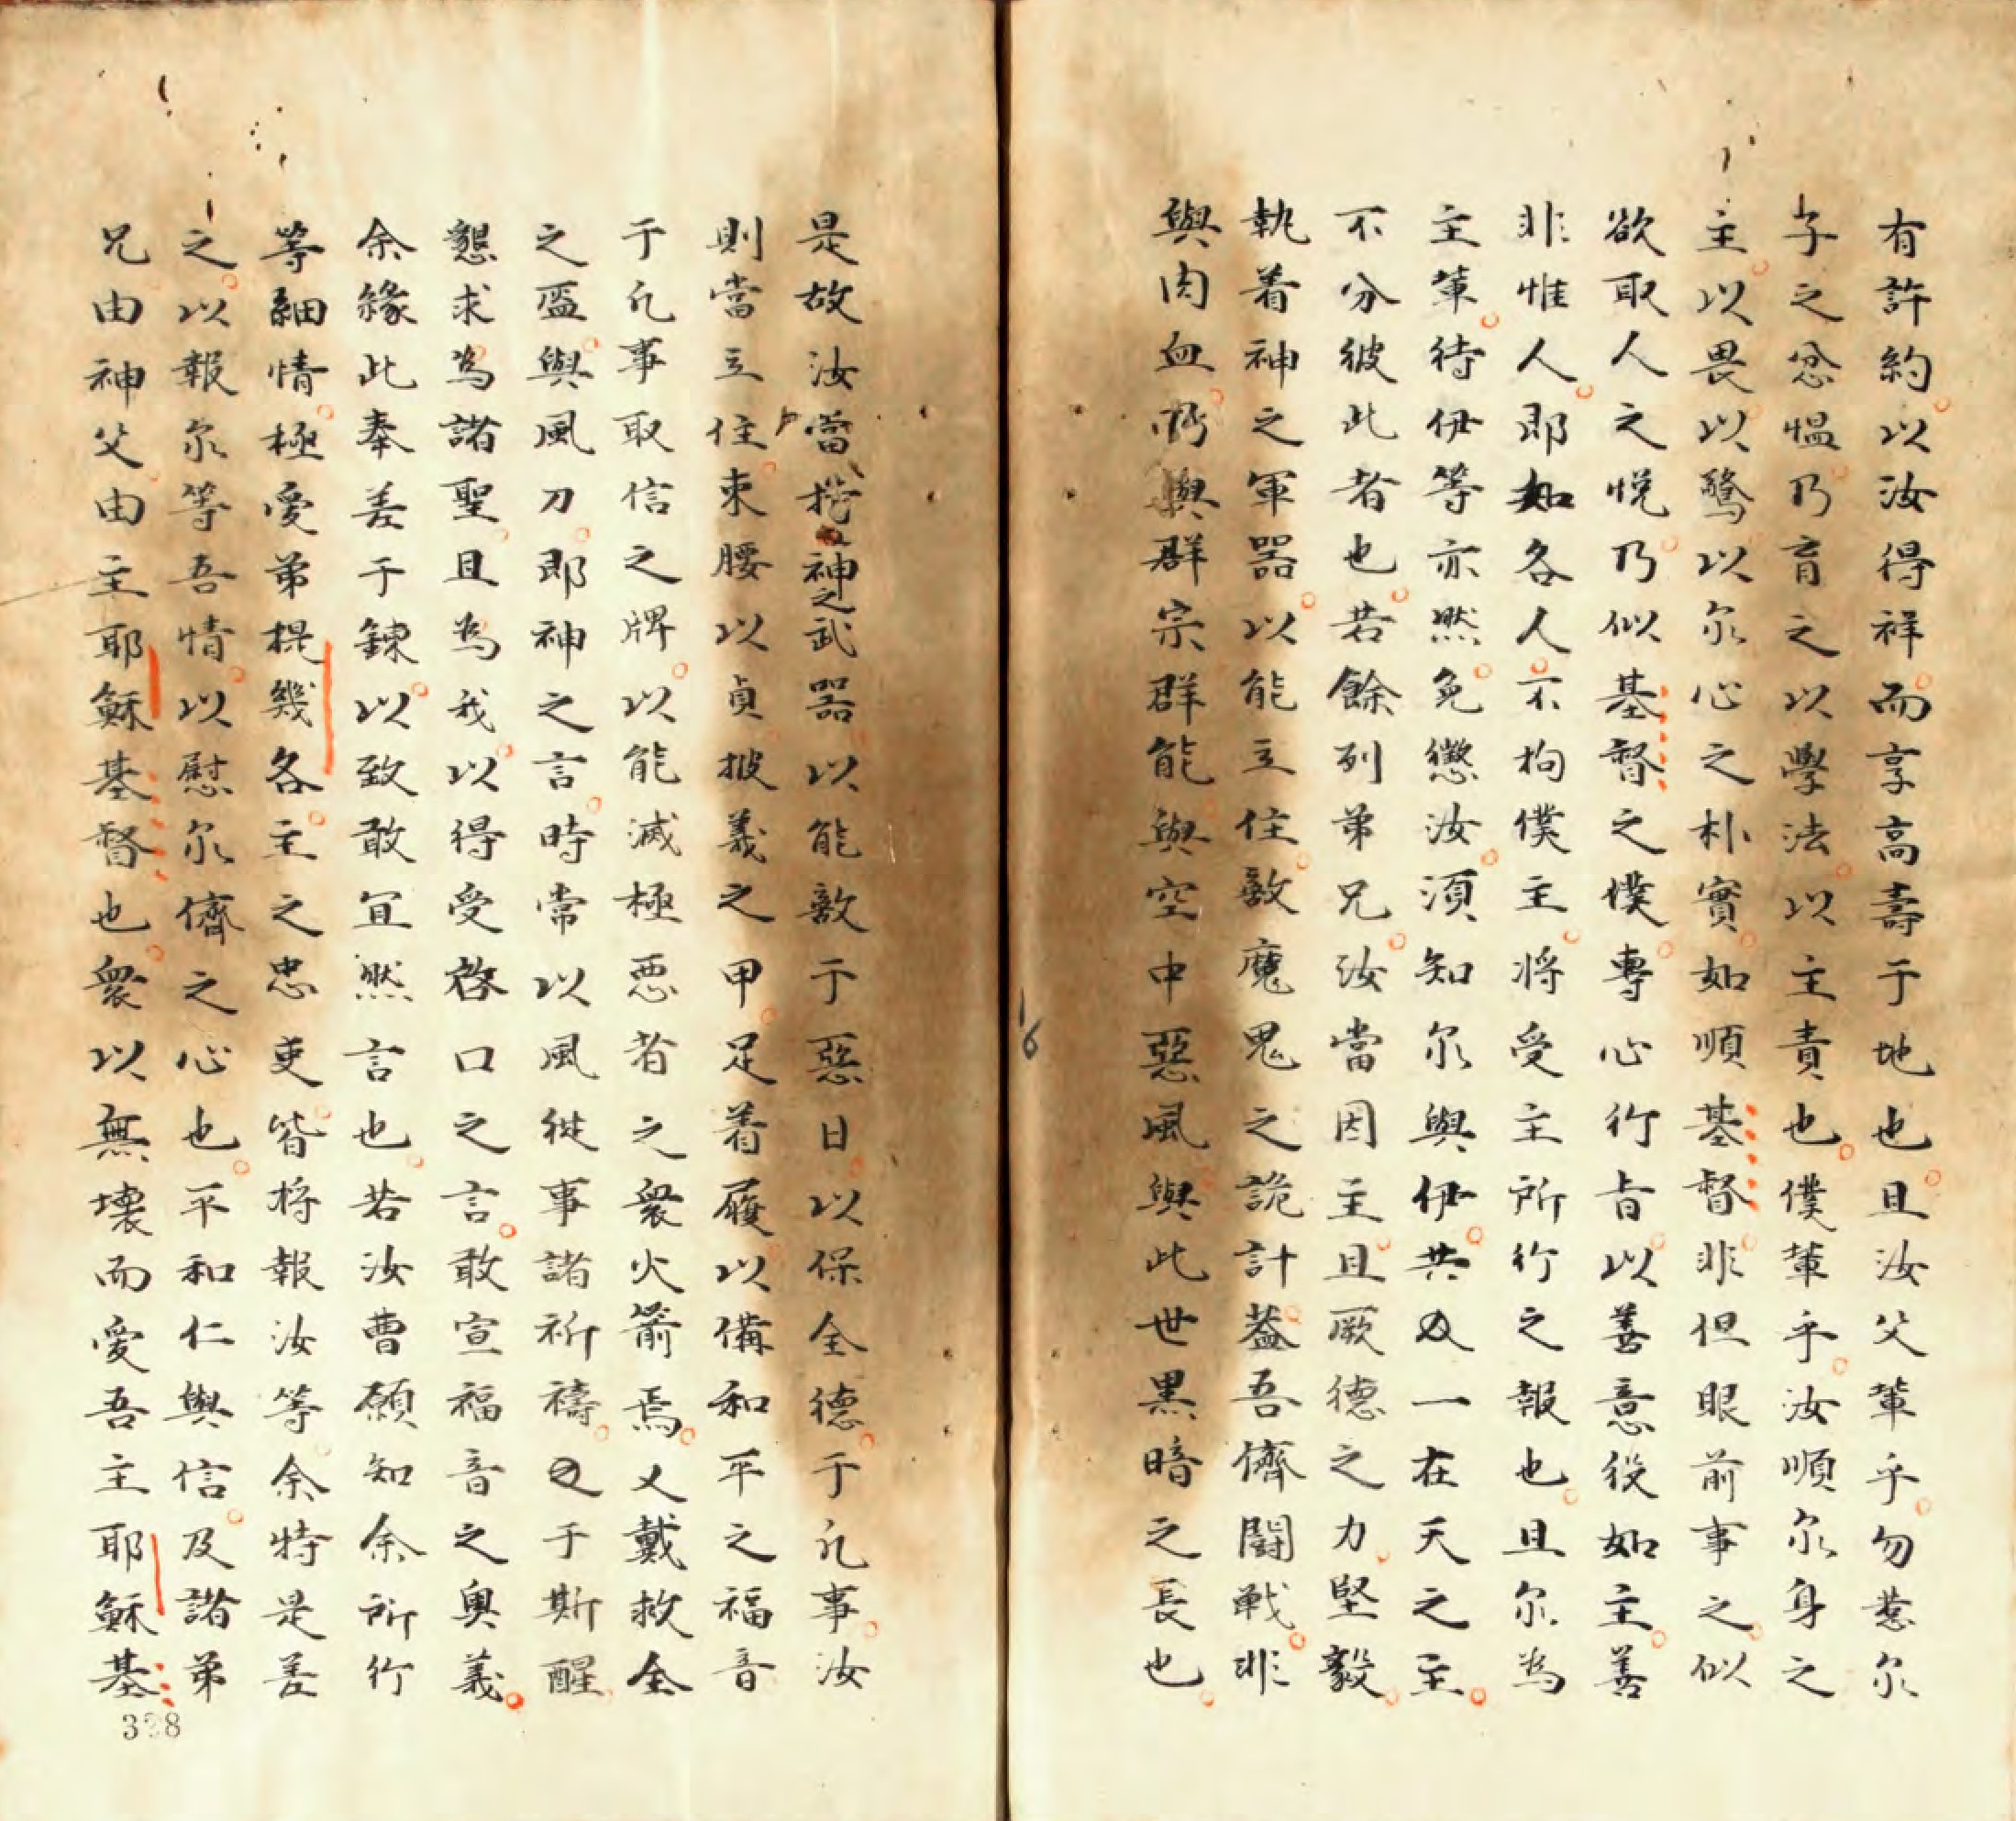 有許約以汝得祥而享高壽于地也且汝父輩乎勿惹尔
子之忿愠乃育之以學法以主責也僕輩乎汝順尔身之
主以畏以驚以尔心之朴實如順基督非但眼前事之似
欲取人之悅乃似基督之僕專心行旨以善意役如主善
非惟人即如各人不拘僕主將受主所行之報也且尔為
主輩待伊等亦然免懲汝湏知尔與伊共又一在天之主
不分彼此者也若餘列弟兄汝當因主且厥德之力堅毅
執着神之軍器以能立住敵魔鬼之詭計葢吾儕鬪戦非
與肉血乃與群宗群能與空中惡風與此世黒暗之長也
是故汝當神之武器以能敵于惡日以保全德于凢事汝
則當立住束腰以貞披義之甲足着履以備和平之福音
于凢事取信之牌以能滅極悪者之衆火箭焉又戴救全
之盔與風刀即神之言時常以風徙事諸祈禱又于斯醒
懇求為諸聖且為我以得受啓口之言敢宣福音之奥義
余緣此奉差于鍊以致敢宜然言也若汝曹願知余所行
等細情極愛弟提幾各主之忠吏皆将報汝等余特是差
之以報尔等吾情以慰尔儕之心也平和仁與信及諸弟
兄由神父由主耶穌基督也衆以無壊而愛吾主耶穌基
328
16